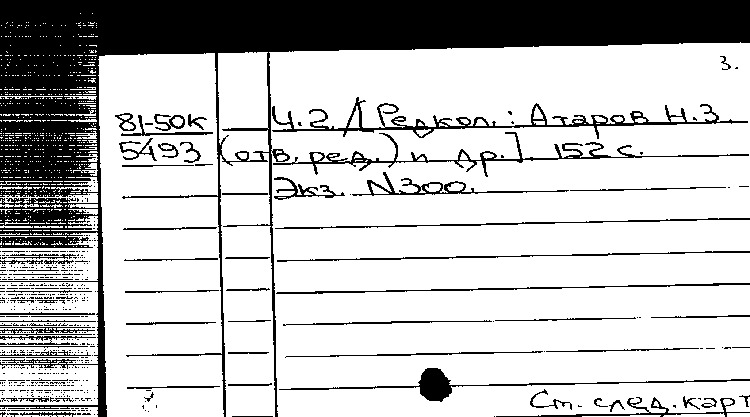 3.
81-50к Ч.2. /[Редкол.: Атаров Н.З.
5493 (отв. ред.) и др.]. 152 с.
Экз. N300.
См. след. карт